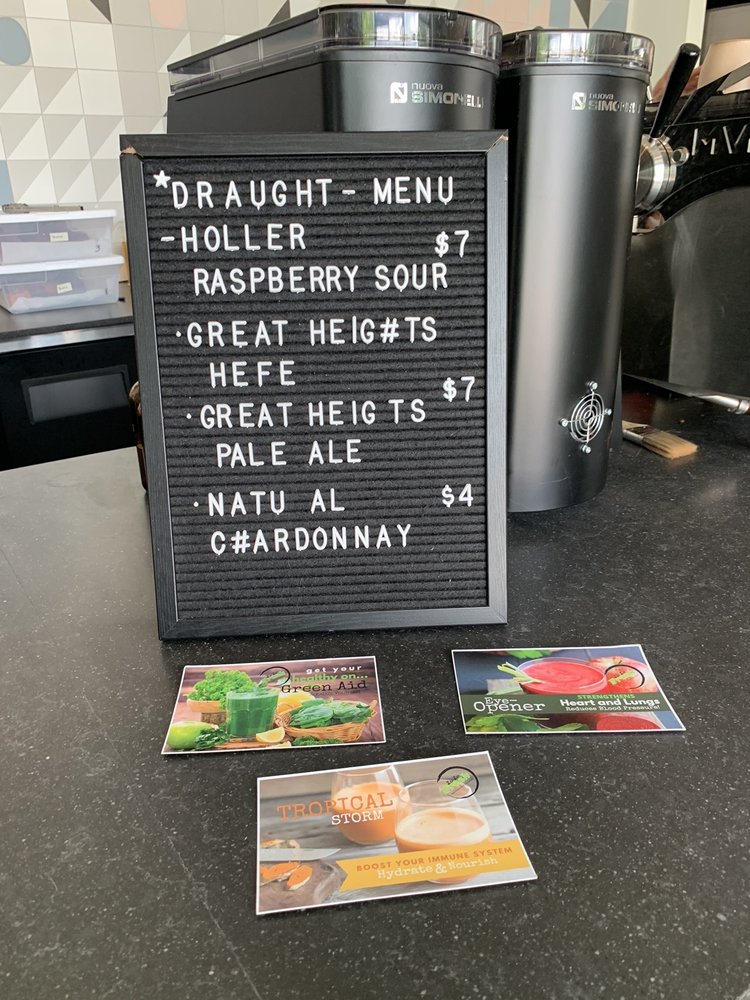 nuova
SIMONELLI
nuova
*DRAUGHT- MENU
-HOLLER $7
RASPBERRY SOUR
·GREAT HEIG#TS
HEFE
$7
·GREAT HEIG TS
PALE ALE
·NATU AL $4
C#ARDONNAY
get your
healthy on...
Green Aid
Eye-
Opener
STRENGTHENS
Heart and Lungs
Reduces Blood Pressure!
TROPICAL
STORM
BOOST YOUR IMMUNE SYSTEM
Hydrate & Nourish